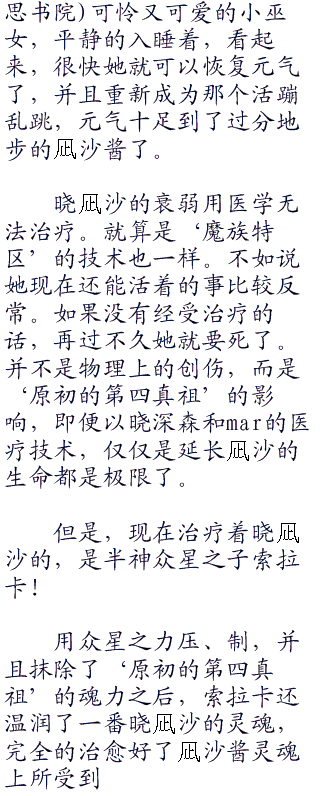 思书院)可怜又可爱的小巫
女，平静的入睡着，看起
来，很快她就可以恢复元气
了，并且重新成为那个活蹦
乱跳，元气十足到了过分地
步的凪沙酱了。
晓凪沙的衰弱用医学无
法治疗。就算是‘魔族特
区’的技术也一样。不如说
她现在还能活着的事比较反
常。如果没有经受治疗的
话，再过不久她就要死了。
并不是物理上的创伤，而是
‘原初的第四真祖’的影
响，即便以晓深森和mar的医
疗技术，仅仅是延长凪沙的
生命都是极限了。
但是，现在治疗着晓凪
沙的，是半神众星之子索拉
卡！
用众星之力压、制，并
且抹除了‘原初的第四真
祖’的魂力之后，索拉卡还
温润了一番晓凪沙的灵魂，
完全的治愈好了凪沙酱灵魂
上所受到